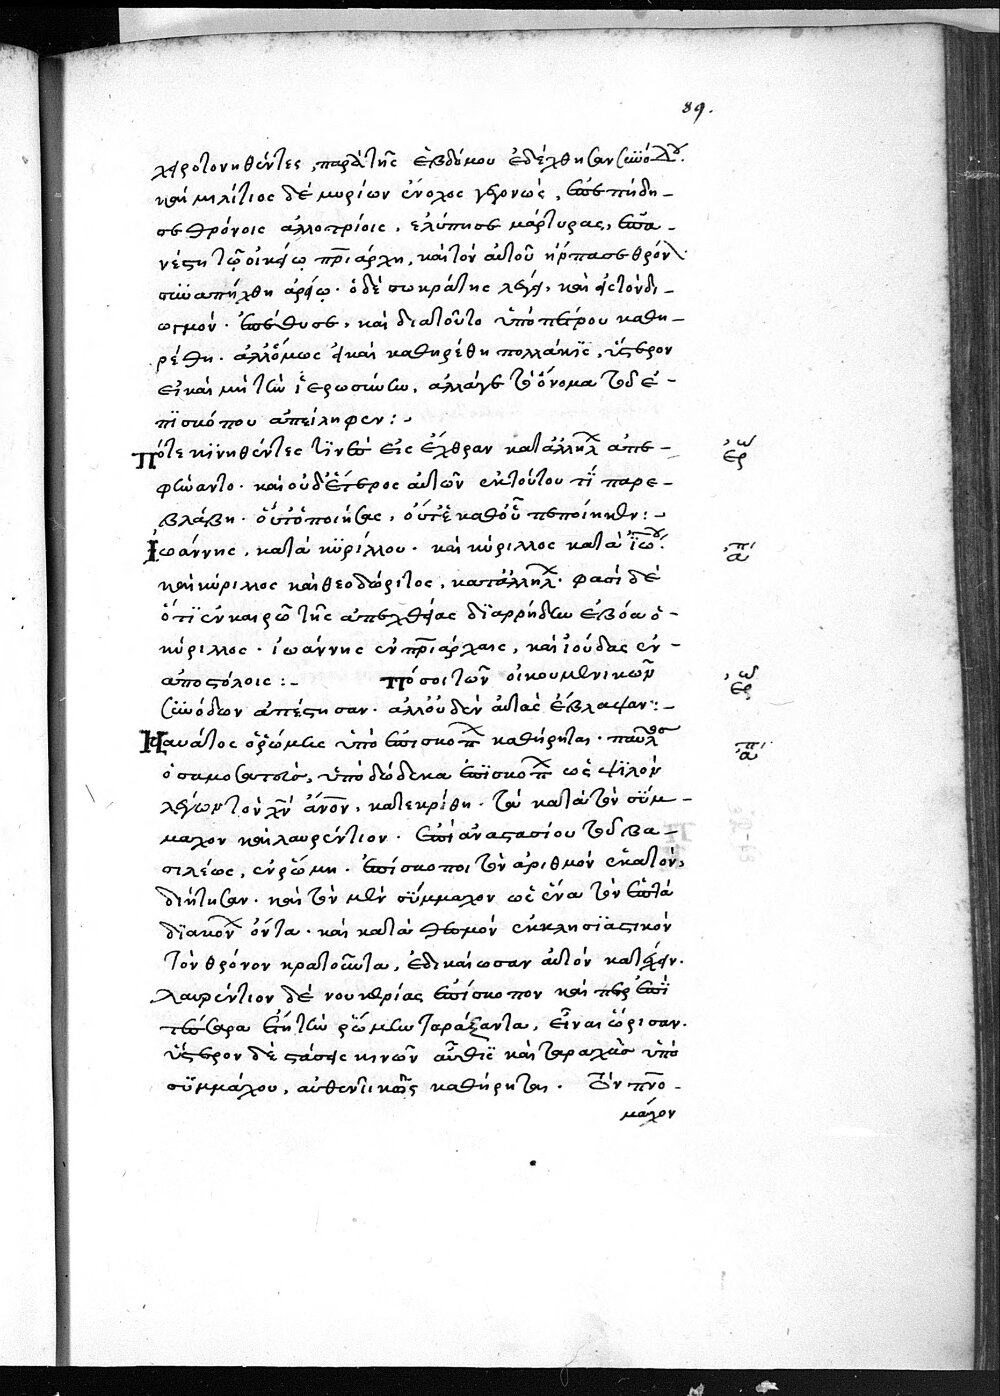 89.
χειροτονηθέντες, παρὰ τῆς ἑβδόμου ἐδέχθησαν συνόδου.
καὶ μελίτιος δὲ μυρίων ἔνοχος γεγονὼς, ἐπεπήδη-
σε θρόνοις ἀλλοτρίοις, ἐλύπησε μάρτυρας, ἐπα-
νέστη τῷ οἰκείῳ πριάρχη, καὶ τὸν αὐτοῦ ἥρπασε θρόνον.
συναπήχθη ἀρείῳ. ὁ δὲ σωκράτης λέγει, καὶ εἰς τὸν δι-
ωγμὸν. ἐπέθυσε, καὶ διὰ τοῦτο ὑπὸ πέτρου καθη-
ρέθη. ἀλλ' ὅμως εἰ καὶ καθηρέθη πολλάκις, ὕστερον
εἰ καὶ μὴ τὴν ἱερωσύνην, ἀλλάγε τὸ ὄνομα τοῦ ἐ-
πισκόπου ἀπείληφεν:-
Πότε κινηθέντες τινὲς εἰς ἔχθραν κατἀλλήλ ἀπε-
φήναντο. καὶ οὐδέτερος αὐτῶν ἐκ τούτου τί παρε-
βλάβη. οὔτ' ὁ ποιήσας, οὔτε καθ' οὗ πεποίηκεν:-
Ἰωάννης, κατὰ κυρίλλου. καὶ κύριλλος κατὰ ἰωου.
καὶ κύριλλος καὶ θεοδώριτος, κατἀλλήλ. φασὶ δὲ
ὅτι ἐν καιρῷ τῆς ἀπεχθείας διαρρήδην ἐβόα ὁ
κύριλλος. ἰωάννης ἐν πριάρχαις, καὶ ἰούδας ἐν
ἀποστόλοις:- Πόσοι τῶν οἰκουμενικῶν
συνόδων ἀπέστησαν. ἀλλ' οὐδὲν αὐτὰς ἔβλαψαν:-
Ναυάτος ὁ ῥώμης ὑπὸ ἐπισκοπ καθήρηται. παῦλος
ὁ σαμοσατεὺς, ὑπὸ δώδεκα ἐπισκοπ ὡς ψιλὸν
λέγων τὸν χν ἄνον, κατεκρίθη. τὰ κατὰ τὸν σύμ-
μαχον καὶ λαυρέντιον. ἐπὶ ἀναστασίου τοῦ βα-
σιλέως, ἐν ῥώμη. ἐπίσκοποι τὸν ἀριθμὸν ἑκατὸν,
διήτησαν. καὶ τὸν μὲν σύμμαχον ὡς ἕνα τῶν ἑπτὰ
διακον ὄντα. καὶ κατὰ θεσμὸν ἐκκλησιαστικὸν
τὸν θρόνον κρατοῦντα, ἐδικαίωσαν αὐτὸν κατέχειν.
λαυρέντιον δὲ νουκερίας ἐπίσκοπον καὶ περ ἐπὶ
τέσσαρα ἔτη τὴν ῥώμην ταράξαντα, εἶναι ὥρισαν.
ὕστερον δὲ στάσεις κινῶν αὖθις καὶ ταραχὰς ὑπὸ
σύμμάχου, αὐθεντικῶς καθήρηται. τὸν πνο-
μάχον
ἐρω
ἀπ
ἐρω
ἀπ